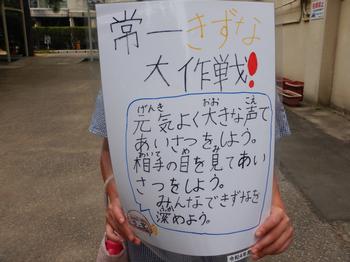 常一きずな
大作戦!
元気よく大きな声で
あいさつをしよう。
相手の目を見てあい
さつをしよう。
みんなできずなを
深めよう。